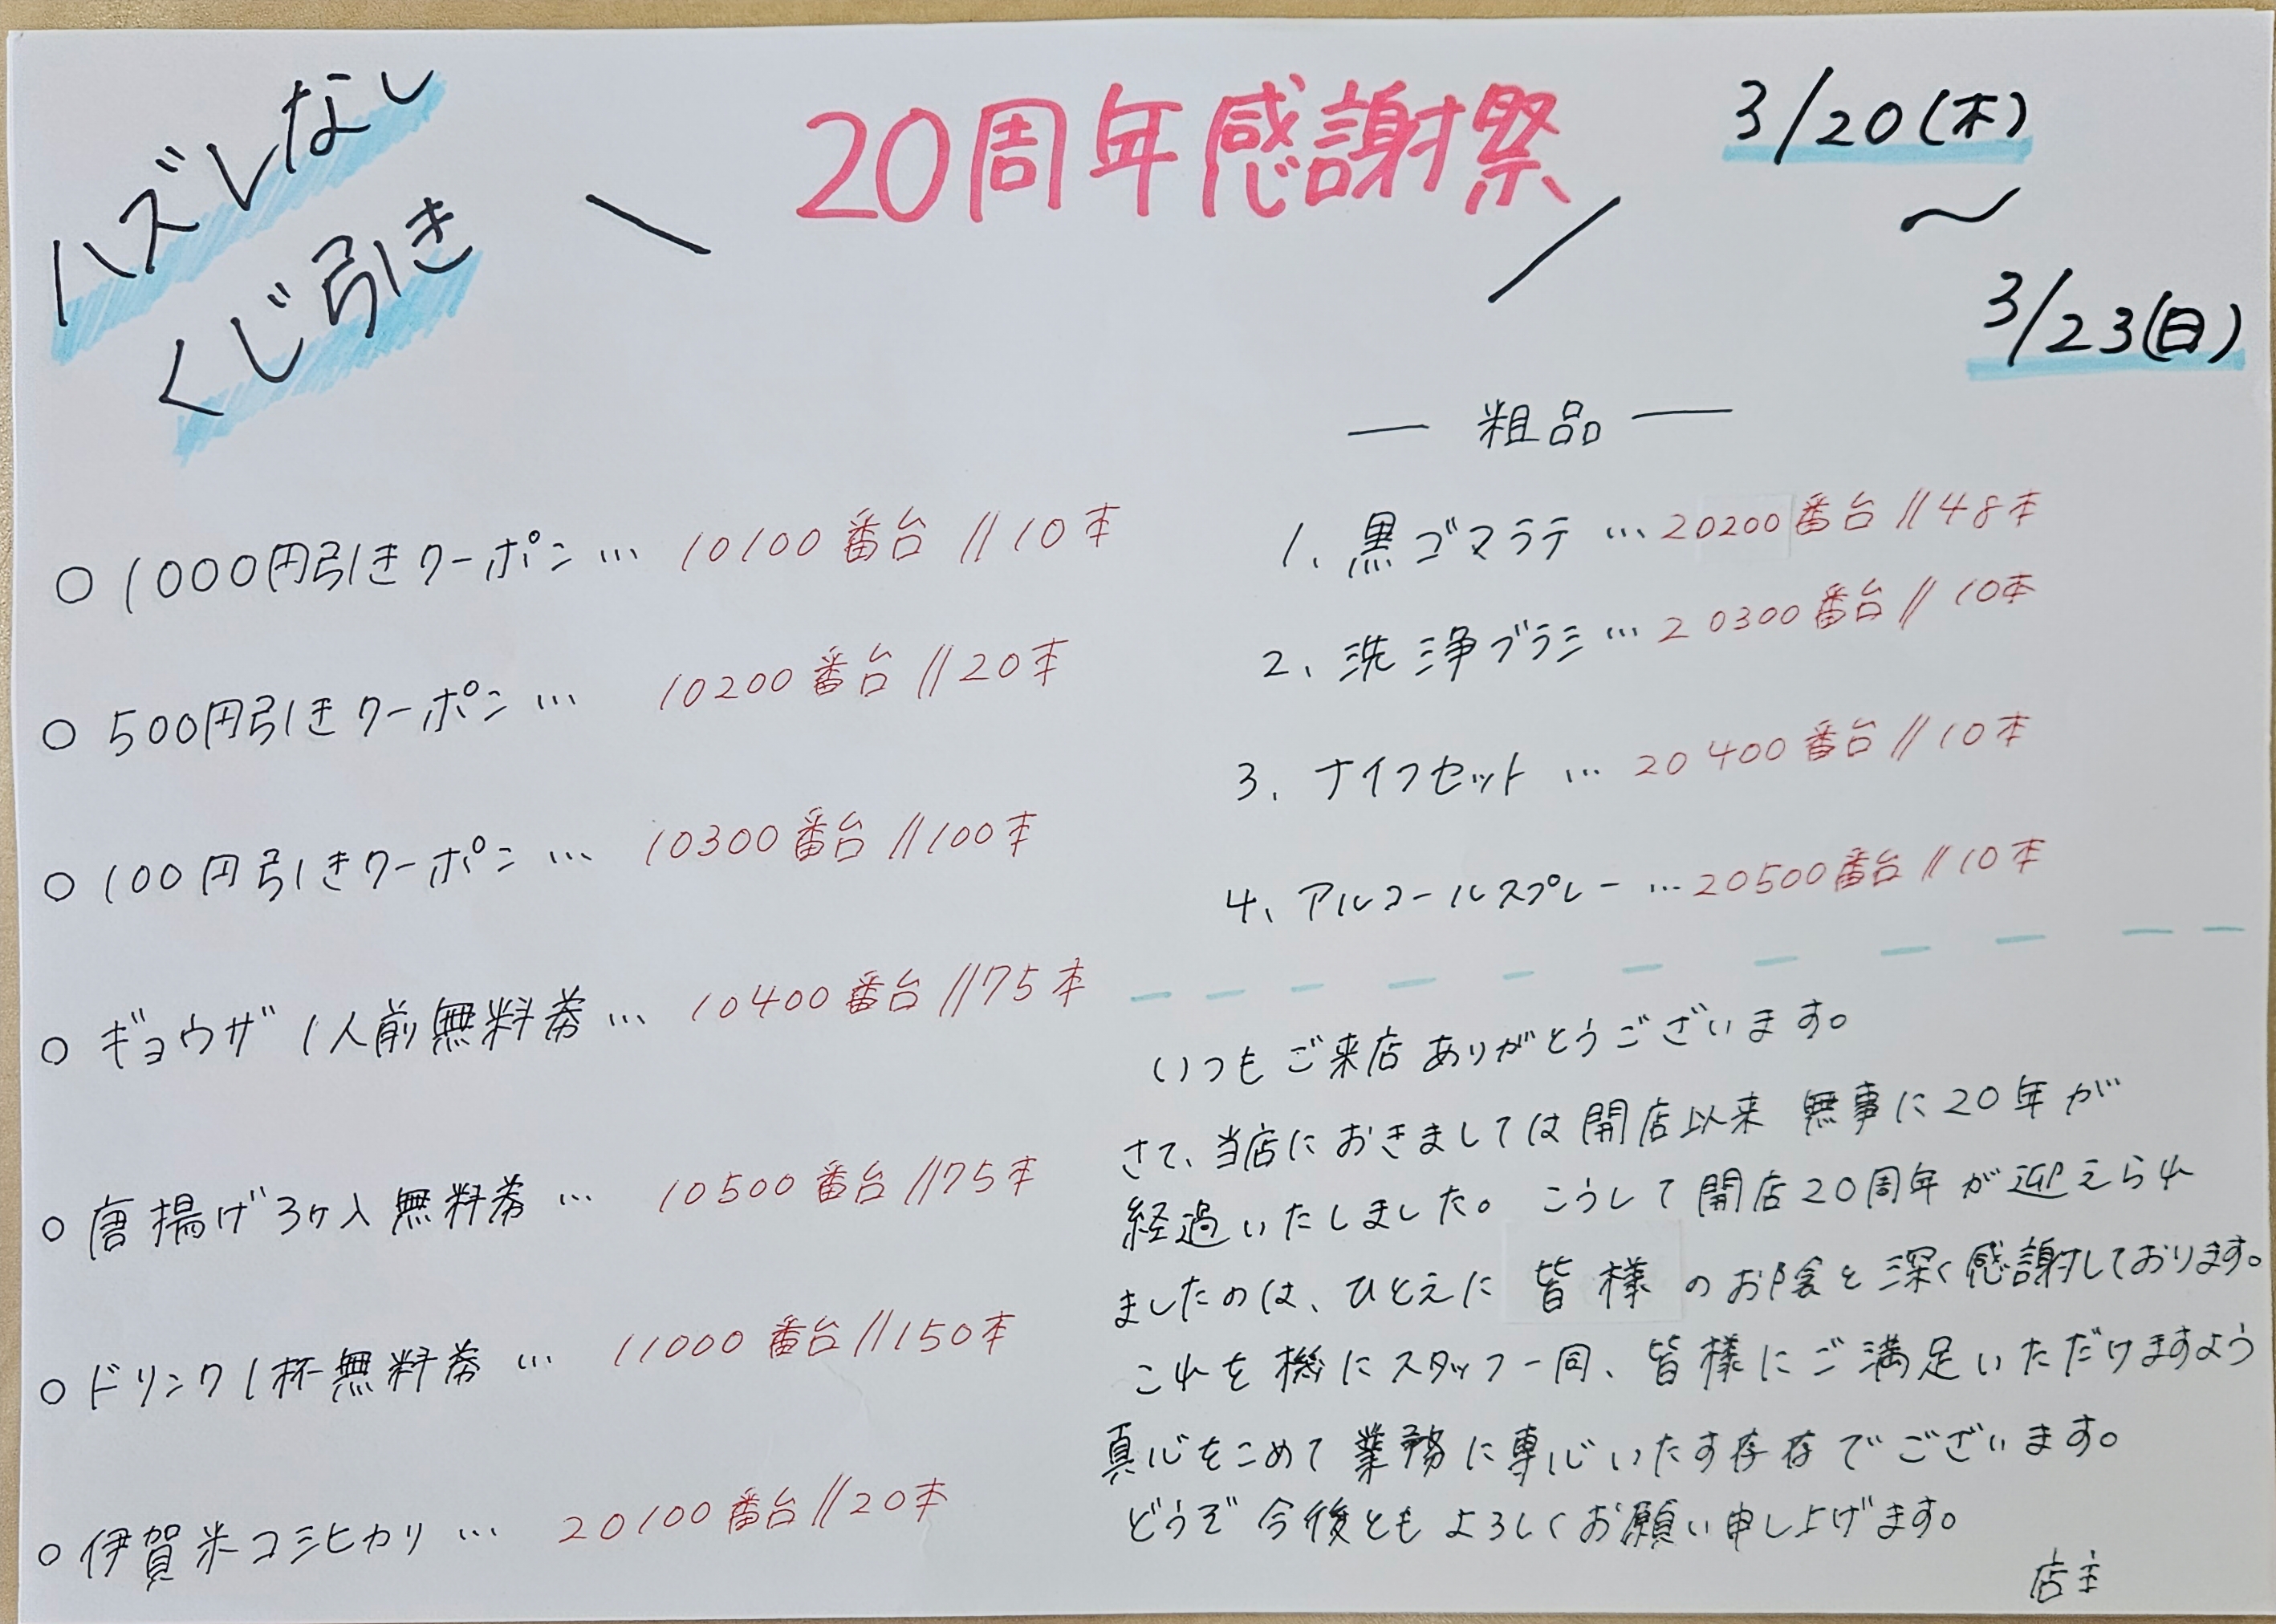 ハズレなし
くじ引き
20周年感謝祭
3/20(木)
〜
3/23(日)
○ 1000円引きクーポン… 10100番台 // 10本
○ 500円引きクーポン… 10200番台 // 20本
○ 100円引きクーポン… 10300番台 // 100本
○ ギョウザ 1人前無料券… 10400番台 // 75本
○ 唐揚げ3ヶ入無料券… 10500番台 // 75本
○ ドリンク1杯無料券… 11000番台 // 150本
○ 伊賀米コシヒカリ… 20100番台 // 20本
― 粗品 ―
1、黒ゴマラテ…20200番台 // 48本
2、洗浄ブラシ…20300番台 // 10本
3、ナイフセット…20400番台 // 10本
4、アルコールスプレー…20500番台 // 10本
いつもご来店ありがとうございます。
さて、当店におきましては開店以来 無事に20年が
経過いたしました。こうして開店20周年が迎えられ
ましたのは、ひとえに 皆様のお陰と深く感謝しております。
これを機にスタッフ一同、皆様にご満足いただけますよう
真心をこめて業務に専心いたす存存でございます。
どうぞ今後ともよろしくお願い申し上げます。
店主